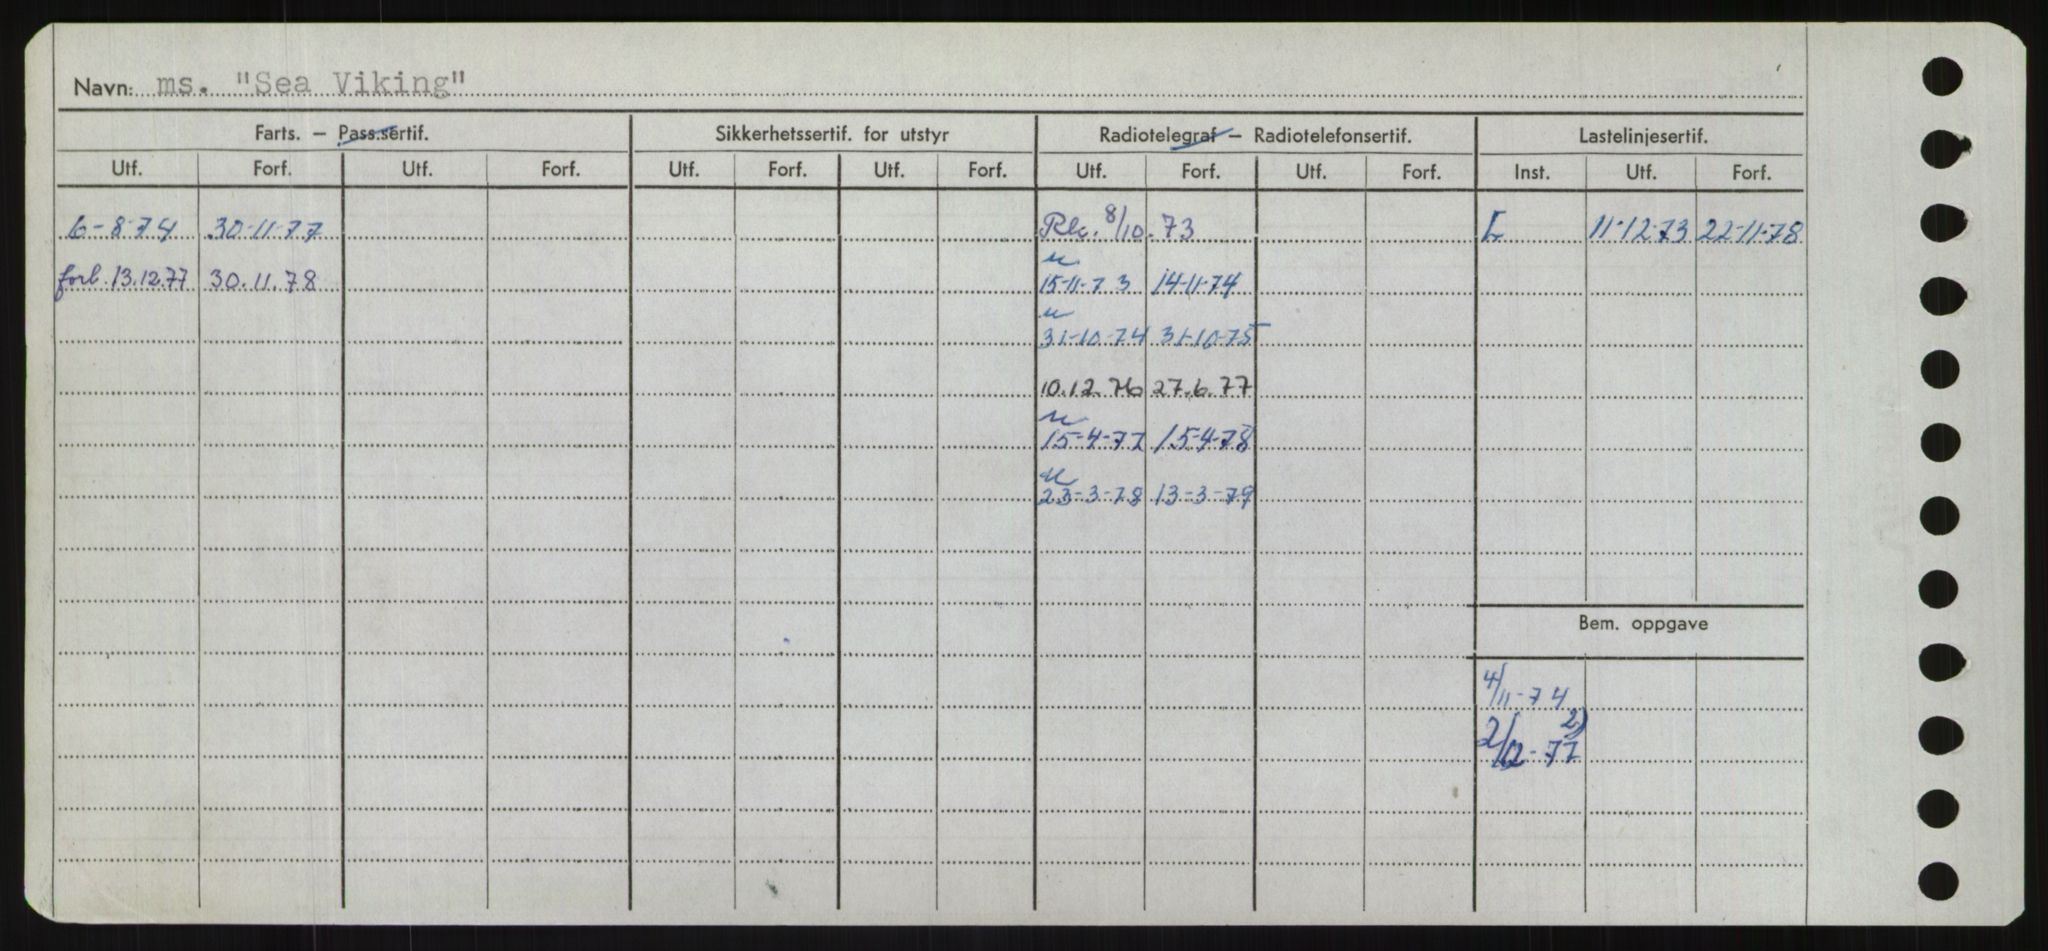 Navn: ms. "Sea Viking"
Farts. – Pass.sertif. Sikkerhetssertif. for utstyr Radiotelegraf – Radiotelefonsertif. Lastelinjesertif.
Utf. Forf. Utf. Forf. Utf. Forf. Utf. Forf. Utf. Forf. Utf. Forf. Inst. Utf. Forf.
6-8-74 30-11-77 8/10.73 L 11-12-73 22-11-78
forl. 13.12.77 30.11.78 15-11-73 14-11-74
31-10-74 31-10-75
10.12.76 27.6.77
15-4-77 15-4-78
23-3-78 13-3-79
Bem. oppgave
4/11-74
2)
2/12-77